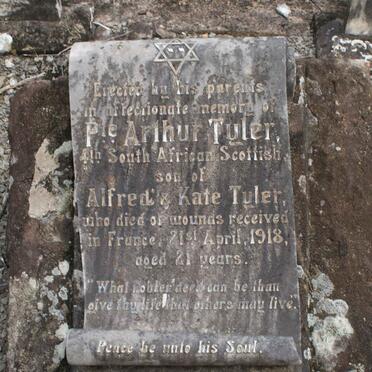 Erected by his parents
in affectionate memory of
Pte Arthur Tyler,
4th South African Scottish,
son of
Alfred & Kate Tyler,
who died of wounds received
in France, 21st April, 1918,
aged 21 years.
"What nobler deed can be than
give thy life that others may live."
Peace be unto his Soul.